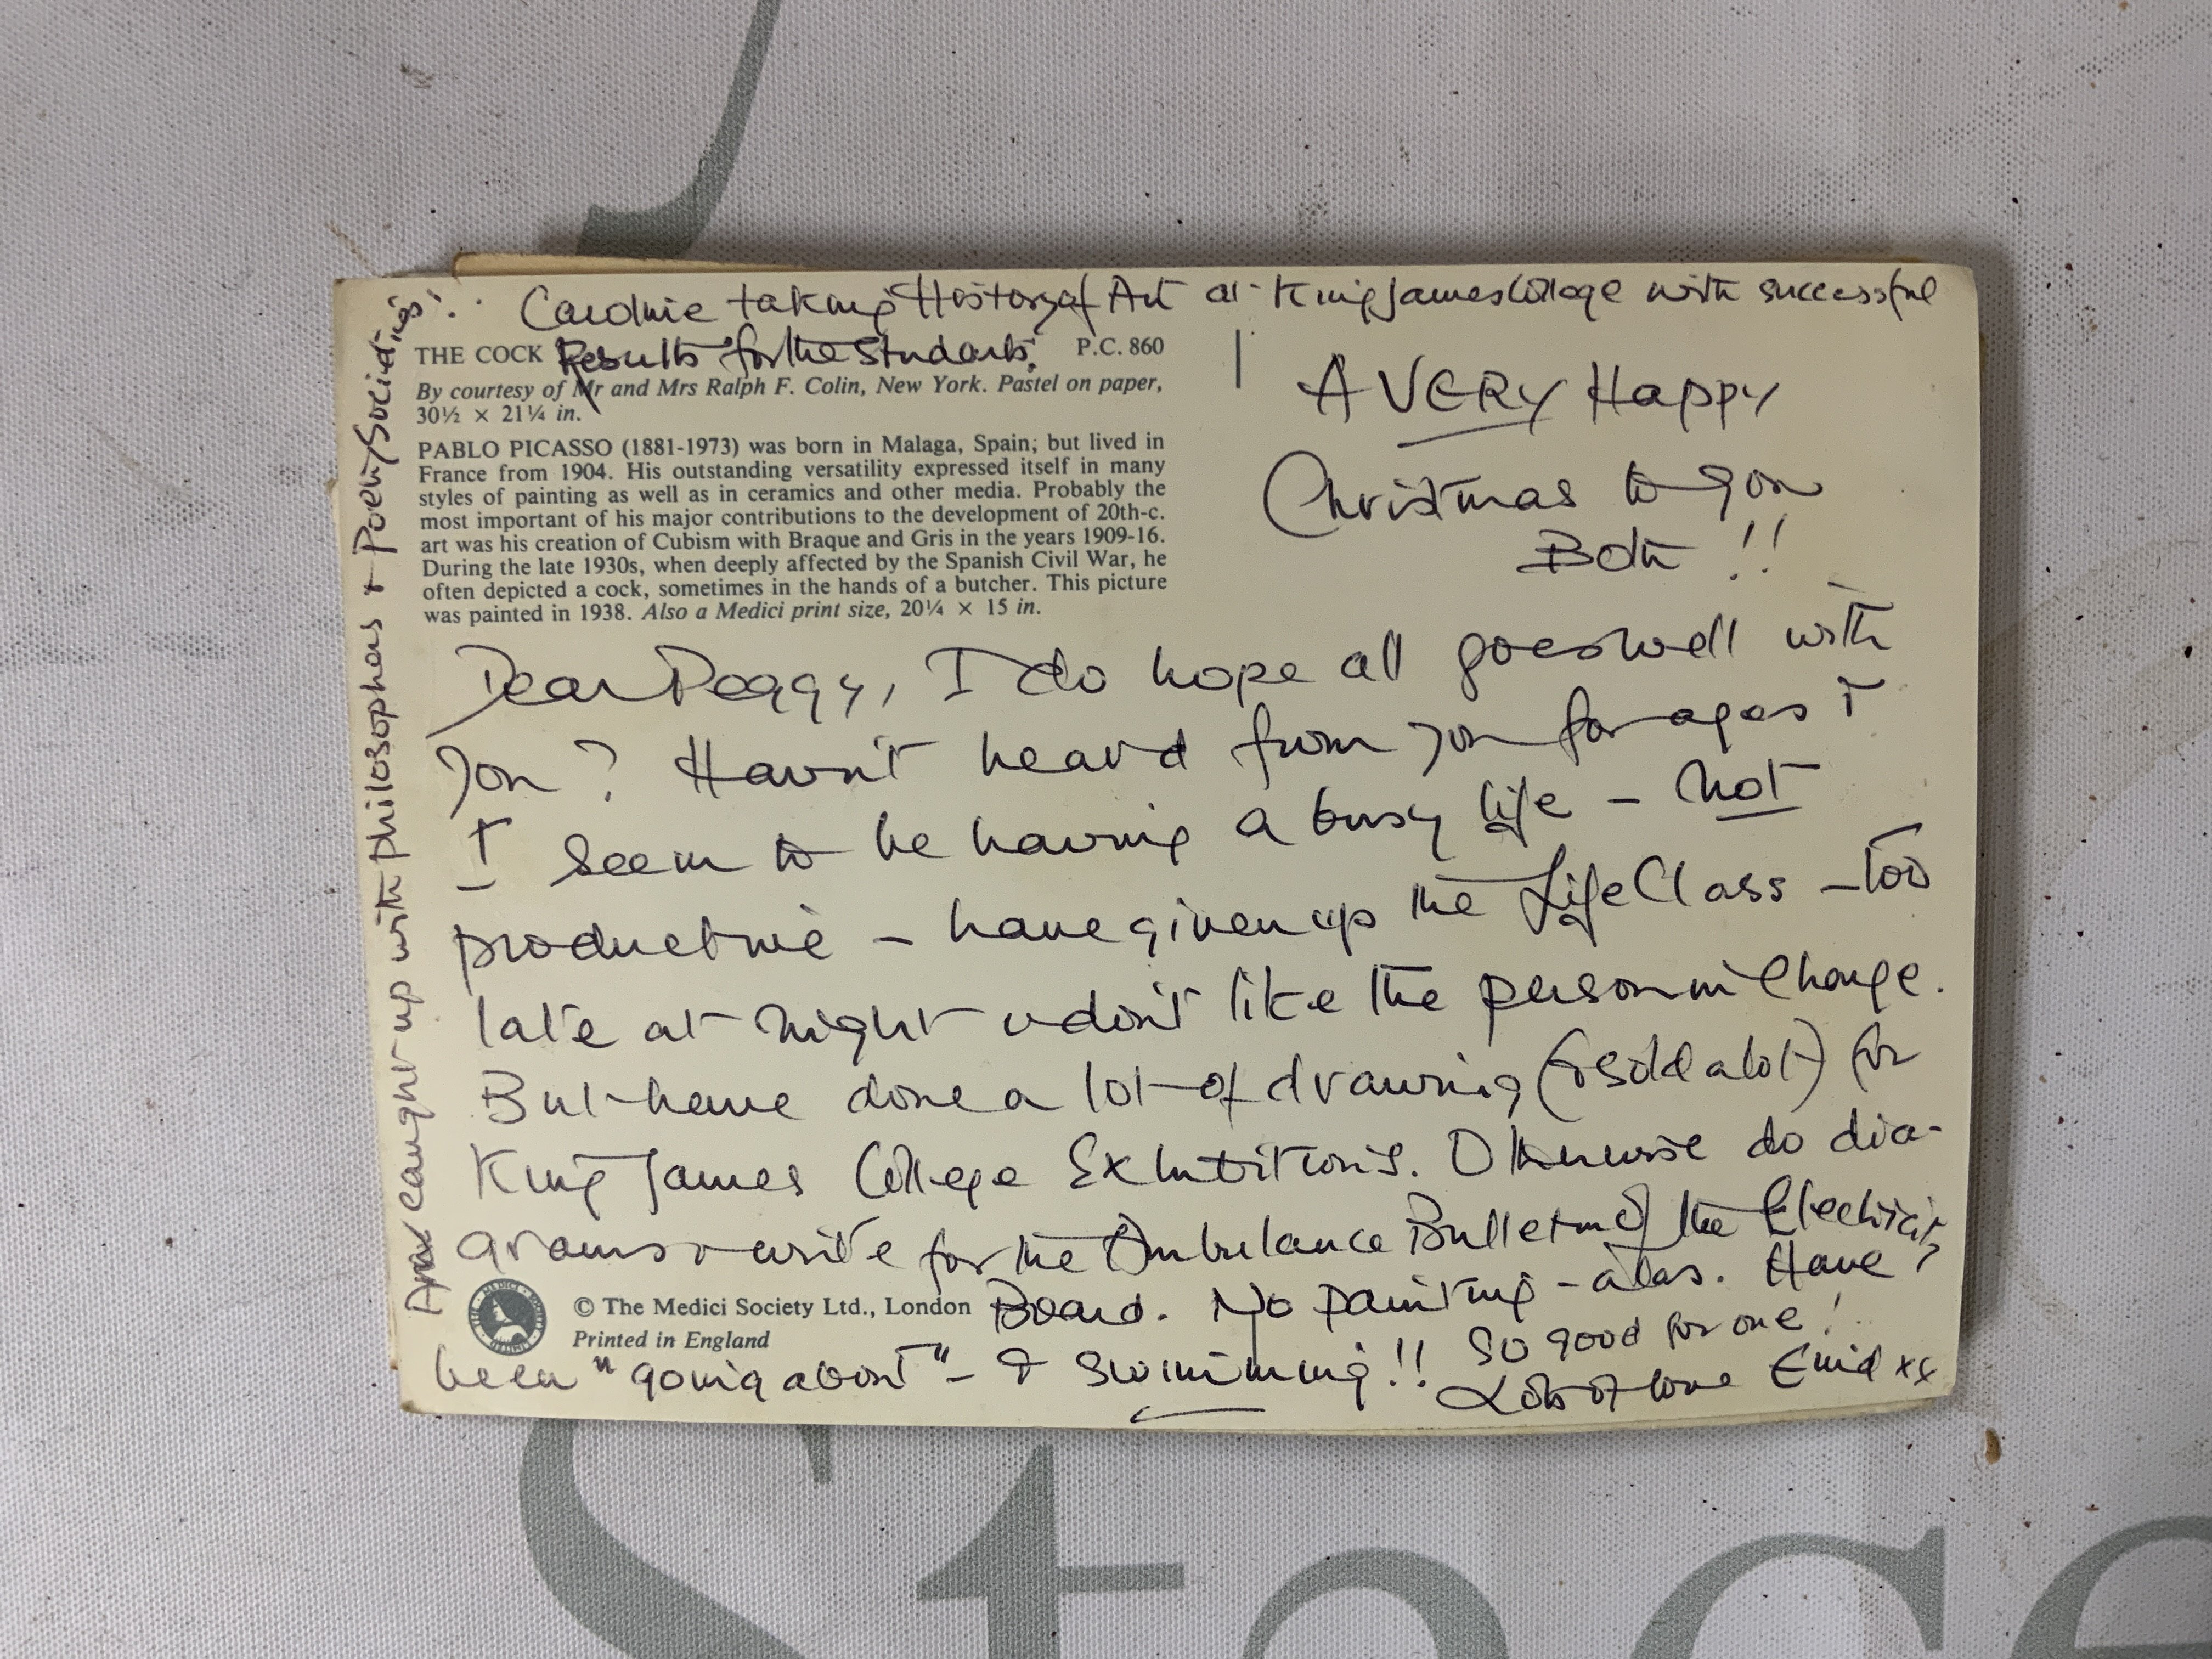 Caroline taking History of Art at King James College with successful
Results for the Students!
THE COCK P.C. 860
By courtesy of Mr and Mrs Ralph F. Colin, New York. Pastel on paper,
30½ × 21¼ in.
PABLO PICASSO (1881-1973) was born in Malaga, Spain; but lived in
France from 1904. His outstanding versatility expressed itself in many
styles of painting as well as in ceramics and other media. Probably the
most important of his major contributions to the development of 20th-c.
art was his creation of Cubism with Braque and Gris in the years 1909-16.
During the late 1930s, when deeply affected by the Spanish Civil War, he
often depicted a cock, sometimes in the hands of a butcher. This picture
was painted in 1938. Also a Medici print size, 20¼ × 15 in.
A VERY Happy
Christmas to you
Both !!
Dear Peggy, I do hope all goes well with
you? Havn't heard from you for ages +
I seem to be having a busy life - not
productive - have given up the Life Class - too
late at night + don't like the person in charge.
But have done a lot of drawing (+ sold a lot) for
King James College Exhibitions. Otherwise do dia-
grams + write for the Ambulance Bulletin of the Electricity
Board. No painting - alas. Have
been "going about" - & swimming!! So good for one!
Lots of love Enid xx
© The Medici Society Ltd., London
Printed in England
THE MEDICI SOCIETY LIMITED
And caught up with philosophers + Poetry Societies!
Stace